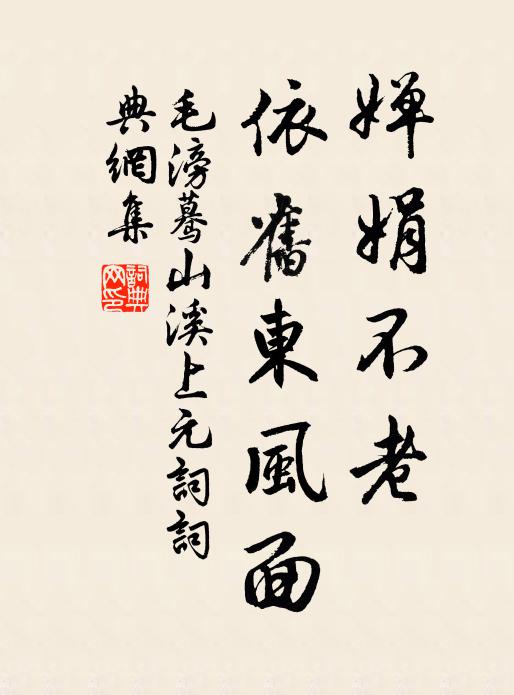 嬋娟不老
依舊東風面
毛滂驀山溪上元詞詞
典網集
詞典
网印